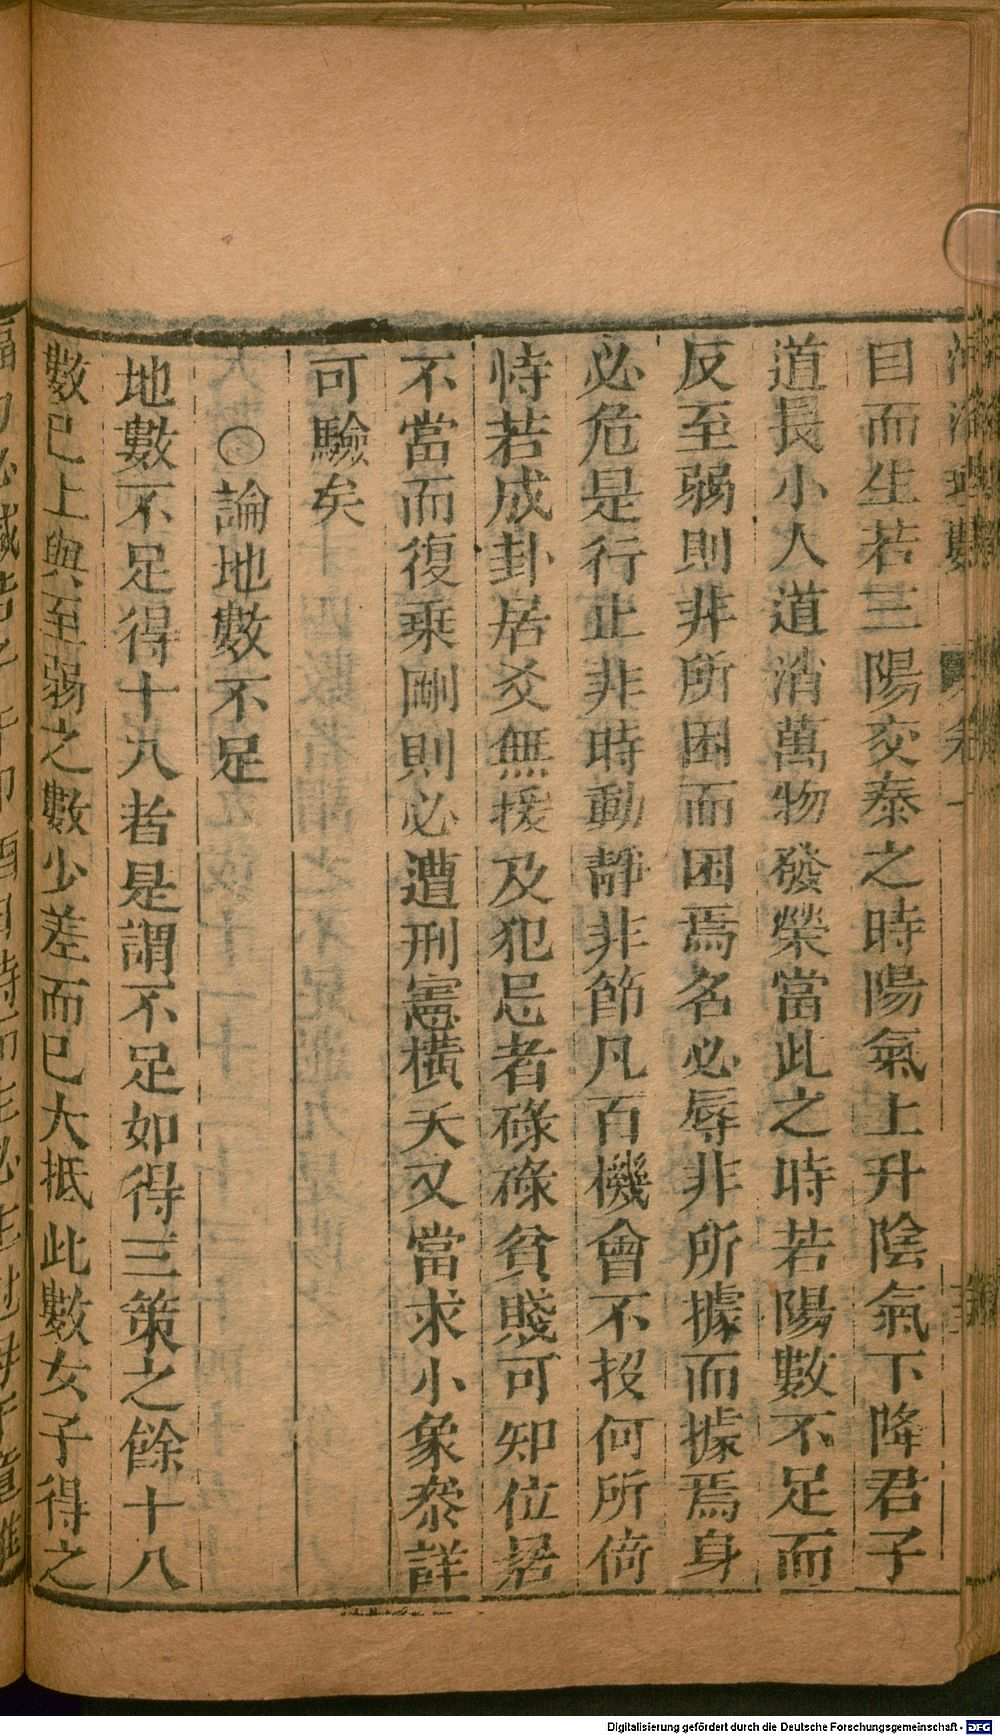 目而生若三陽交泰之時陽氣上升陰氣下降君子
道長小人道消萬物發榮當此之時若陽數不足而
反至弱則非所困而困焉名必辱非所據而據焉身
必危是行止非時動靜非節凡百機會不投何所倚
恃若成卦居爻無援及犯忌者碌碌貧賤可知位居
不當而復乘剛則必遭刑憲橫夭又當求小象叅詳
可驗矣
○論地數不足
地數不足得十八者是謂不足如得三策之餘十八
數已上與至弱之數少差而已大抵此數女子得之
Digitalisierung gefördert durch die Deutsche Forschungsgemeinschaft - DFG